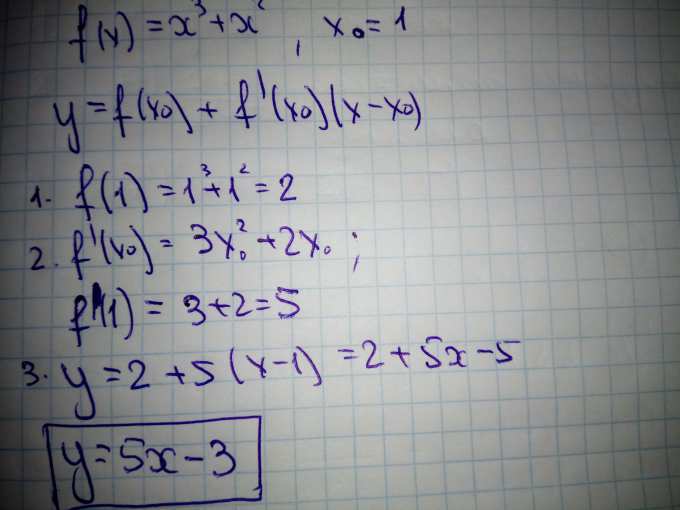 f(x) = x³ + x², x₀ = 1
y = f(x₀) + f'(x₀)(x - x₀)
1. f(1) = 1³ + 1² = 2
2. f'(x₀) = 3x₀² + 2x₀;
f'(1) = 3 + 2 = 5
3. y = 2 + 5(x - 1) = 2 + 5x - 5
y = 5x - 3